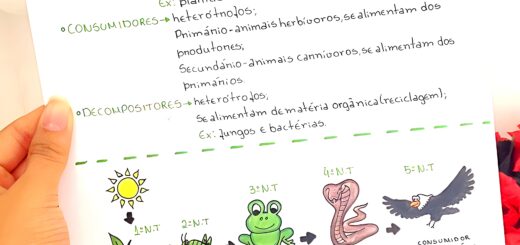 Ex: plan
• CONSUMIDORES → heterótrofos;
Primário - animais herbívoros, se alimentam dos
produtores;
Secundário - animais carnívoros, se alimentam dos
primários
• DECOMPOSITORES → heterótrofos;
Se alimentam de matéria orgânica (reciclagem);
Ex: fungos e bactérias.
1º N.T
2º N.T
3º N.T
4º N.T
5º N.T
CONSUMIDOR